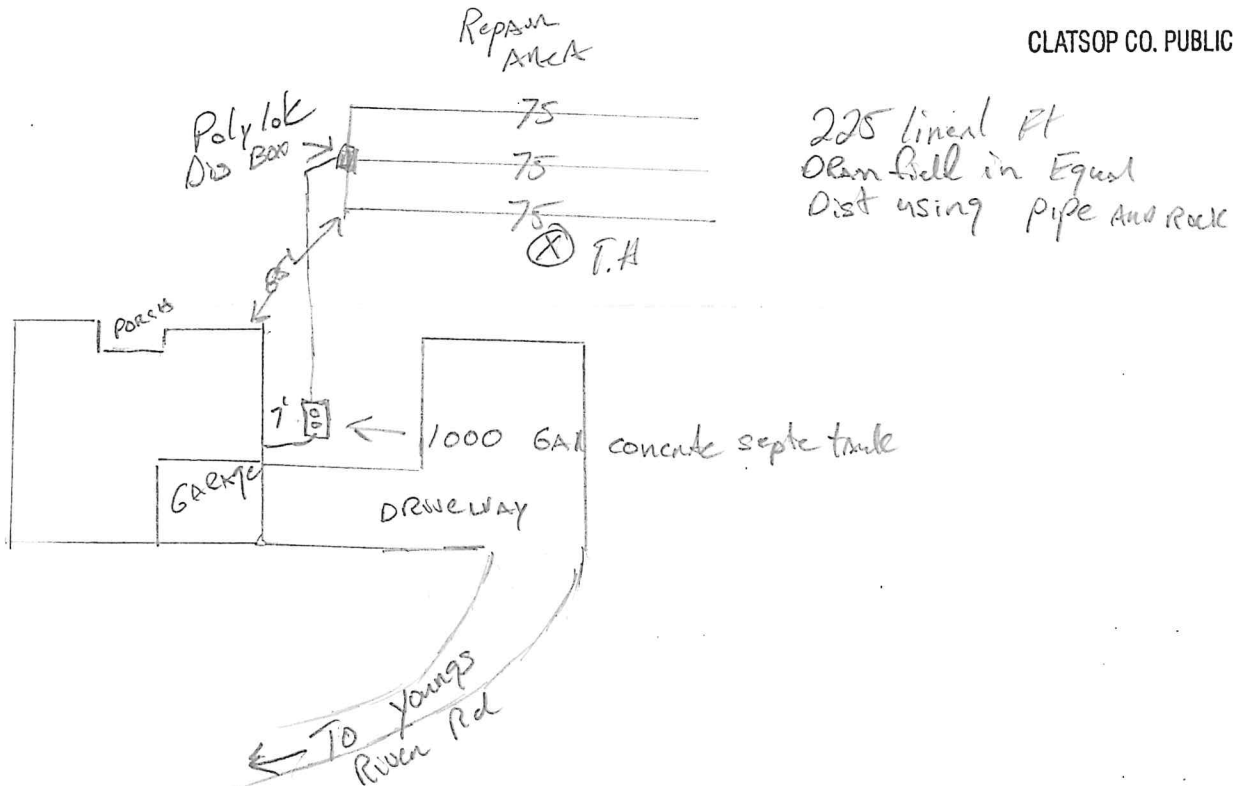 CLATSOP CO. PUBLIC
Repair
Area
Polylok
Dis Box
75
75
75
225 lineal Ft
Drain field in Equal
Dist using pipe and Rock
X T.H
85'
PORCH
7'
1000 GAL concrete septc tank
GARAGE
DRIVEWAY
To Youngs
River Rd